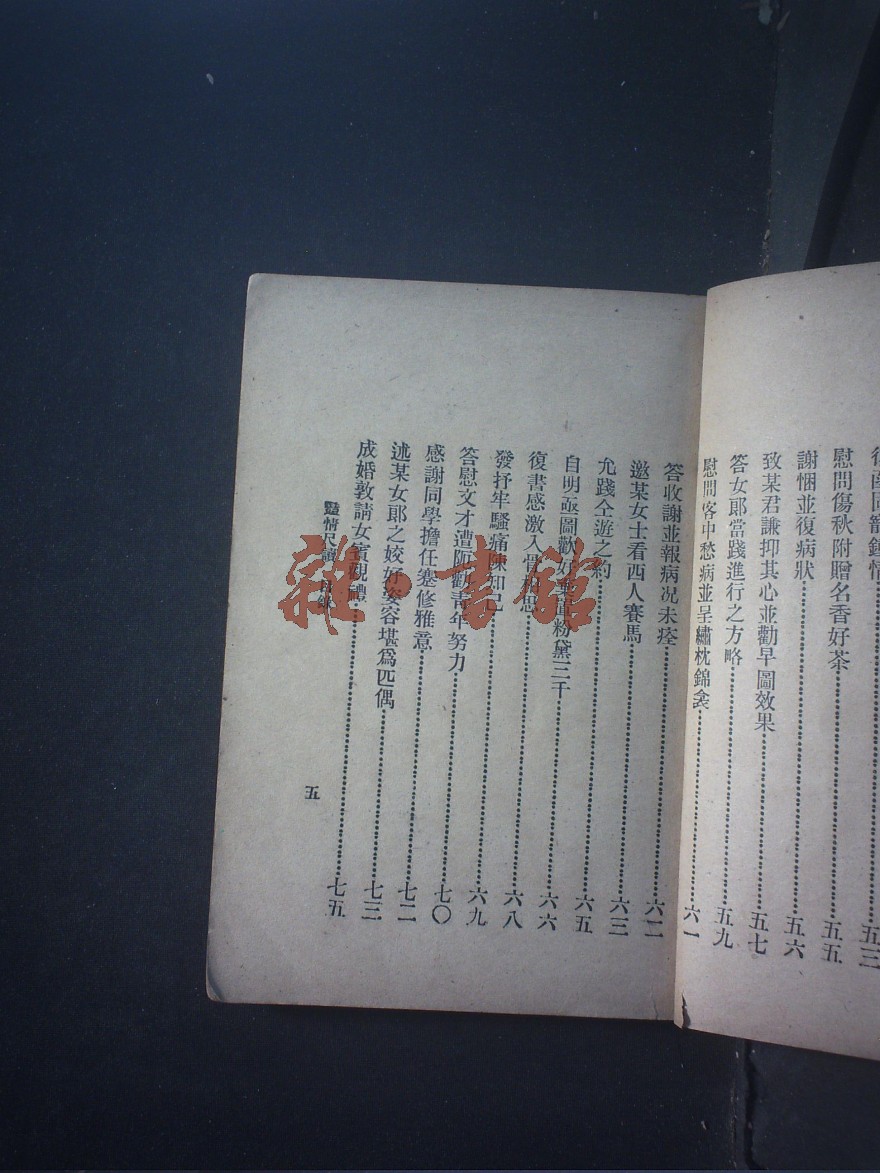 慰問傷秋附贈名香好茶……五五
謝悃並復病狀……五六
致某君謙抑其心並勸早圖效果……五七
答女郎當踐進行之方略……五九
慰問客中愁病並呈繡枕錦衾……六一
答收謝並報病况未痊……六二
邀某女士看西人賽馬……六三
允踐仝遊之約……六五
自明亟圖歡好 粉黛三千……六六
復書感激入骨相思……六八
發抒牢騷痛陳知己……六九
答慰文才遭阨勸青年努力……七〇
感謝同學擔任蹇修雅意……七二
述某女郎之姣好姿容堪爲匹偶……七三
成婚敦請女賓觀禮……七五
豔情尺牘 目錄
五
雜·書館